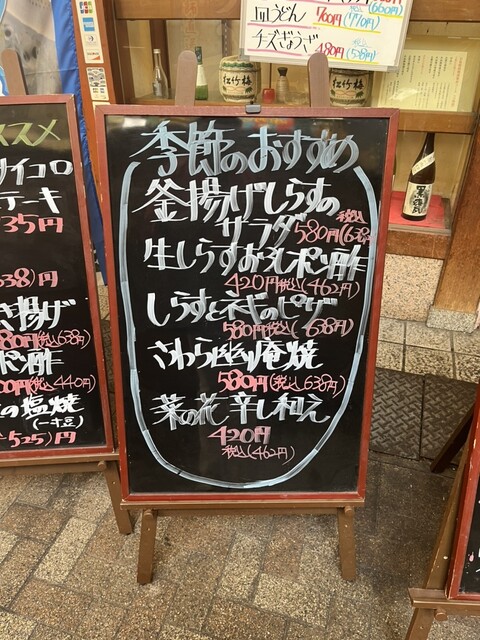 皿うどん
700円(770円)
チーズぎょうざ
480円(528円)
松竹梅
松竹梅
季節のおすすめ
釜揚げしらすの
サラダ 580円(税込638円)
生しらすおろしポン酢
420円(税込462円)
しらすとネギのピザ
580円(税込638円)
さわら幽庵焼
580円(税込638円)
菜の花辛し和え
420円
税込(462円)
ススメ
サイコロ
テーキ
35円
638)円
き揚げ
80円(税込638円)
ポン酢
00円(税込440円)
の塩焼
(一キ豆)
525)円